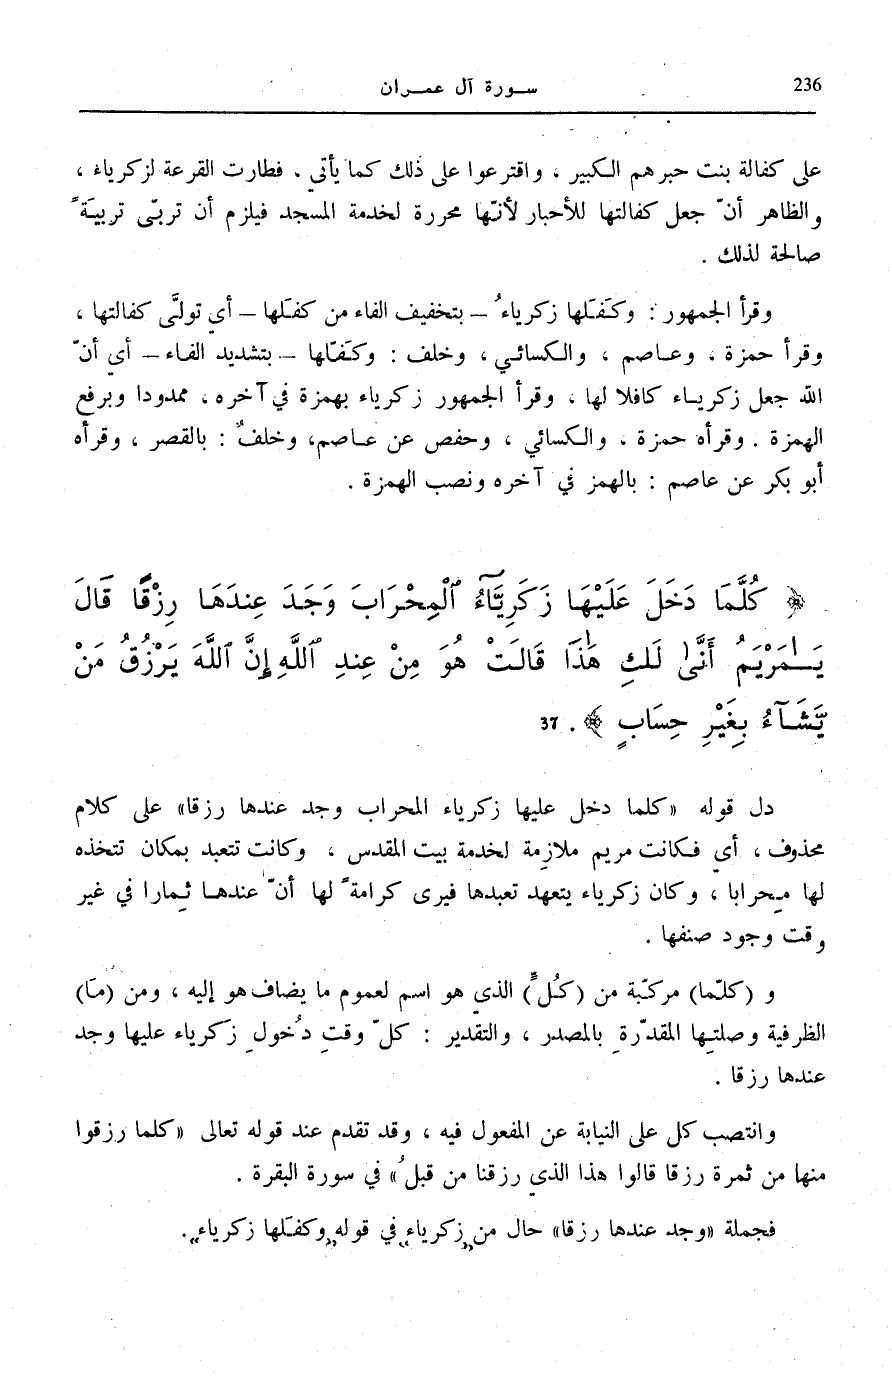 236
سـورة آل عمـران
على كفالة بنت حبرهم الكبير ، واقترعوا على ذلك كما يأتي . فطارت القرعة لزكرياء ،
والظاهر أنّ جعل كفالتها للأحبار لأنّها محررة لخدمة المسجد فيلزم أن تربّى تربيةً
صالحة لذلك .
وقرأ الجمهور : وكَفَلها زكرياءُ – بتخفيف الفاء من كفَلها – أي تولَّى كفالتها ،
وقرأ حمزة ، وعـاصم ، والكسائي ، وخلف : وكَفّلها – بتشديد الفـاء – أي أنّ
الله جعل زكريـاء كافلا لها ، وقرأ الجمهور زكرياء بهمزة في آخره ، ممدودا وبرفع
الهمزة . وقرأه حمزة ، والكسائي ، وحفص عن عـاصم، وخلفٌ : بالقصر ، وقرأه
أبو بكر عن عاصم : بالهمز في آخره ونصب الهمزة .
﴿ كُلَّمَا دَخَلَ عَلَيْهَا زَكَرِيَّآءُ ٱلْمِحْرَابَ وَجَدَ عِندَهَا رِزْقًا قَالَ
يَـٰمَرْيَمُ أَنَّىٰ لَكِ هَٰذَا قَالَتْ هُوَ مِنْ عِندِ ٱللَّهِ إِنَّ ٱللَّهَ يَرْزُقُ مَنْ
يَّشَآءُ بِغَيْرِ حِسَابٍ ﴾ . 37
دل قوله «كلما دخل عليها زكرياء المحراب وجد عندها رزقا» على كلام
محذوف ، أي فكانت مريم ملازمة لخدمة بيت المقدس ، وكانت تتعبد بمكان تتخذه
لها محرابا ، وكان زكرياء يتعهد تعبدها فيرى كرامةً لها أنّ عندهـا ثمارا في غير
وقت وجود صنفها .
و (كلّما) مركّبة من (كُلّ) الذي هو اسم لعموم ما يضاف هو إليه ، ومن (مَا)
الظرفية وصلتِها المقدّرةِ بالمصدر ، والتقدير : كلّ وقتِ دُخولِ زكرياء عليها وجد
عندها رزقا .
وانتصب كل على النيابة عن المفعول فيه ، وقد تقدم عند قوله تعالى «كلما رزقوا
منها من ثمرة رزقا قالوا هذا الذي رزقنا من قبلُ» في سورة البقرة .
فجملة «وجد عندها رزقا» حال من „زكرياء„ في قوله „وكفَلها زكرياء„.